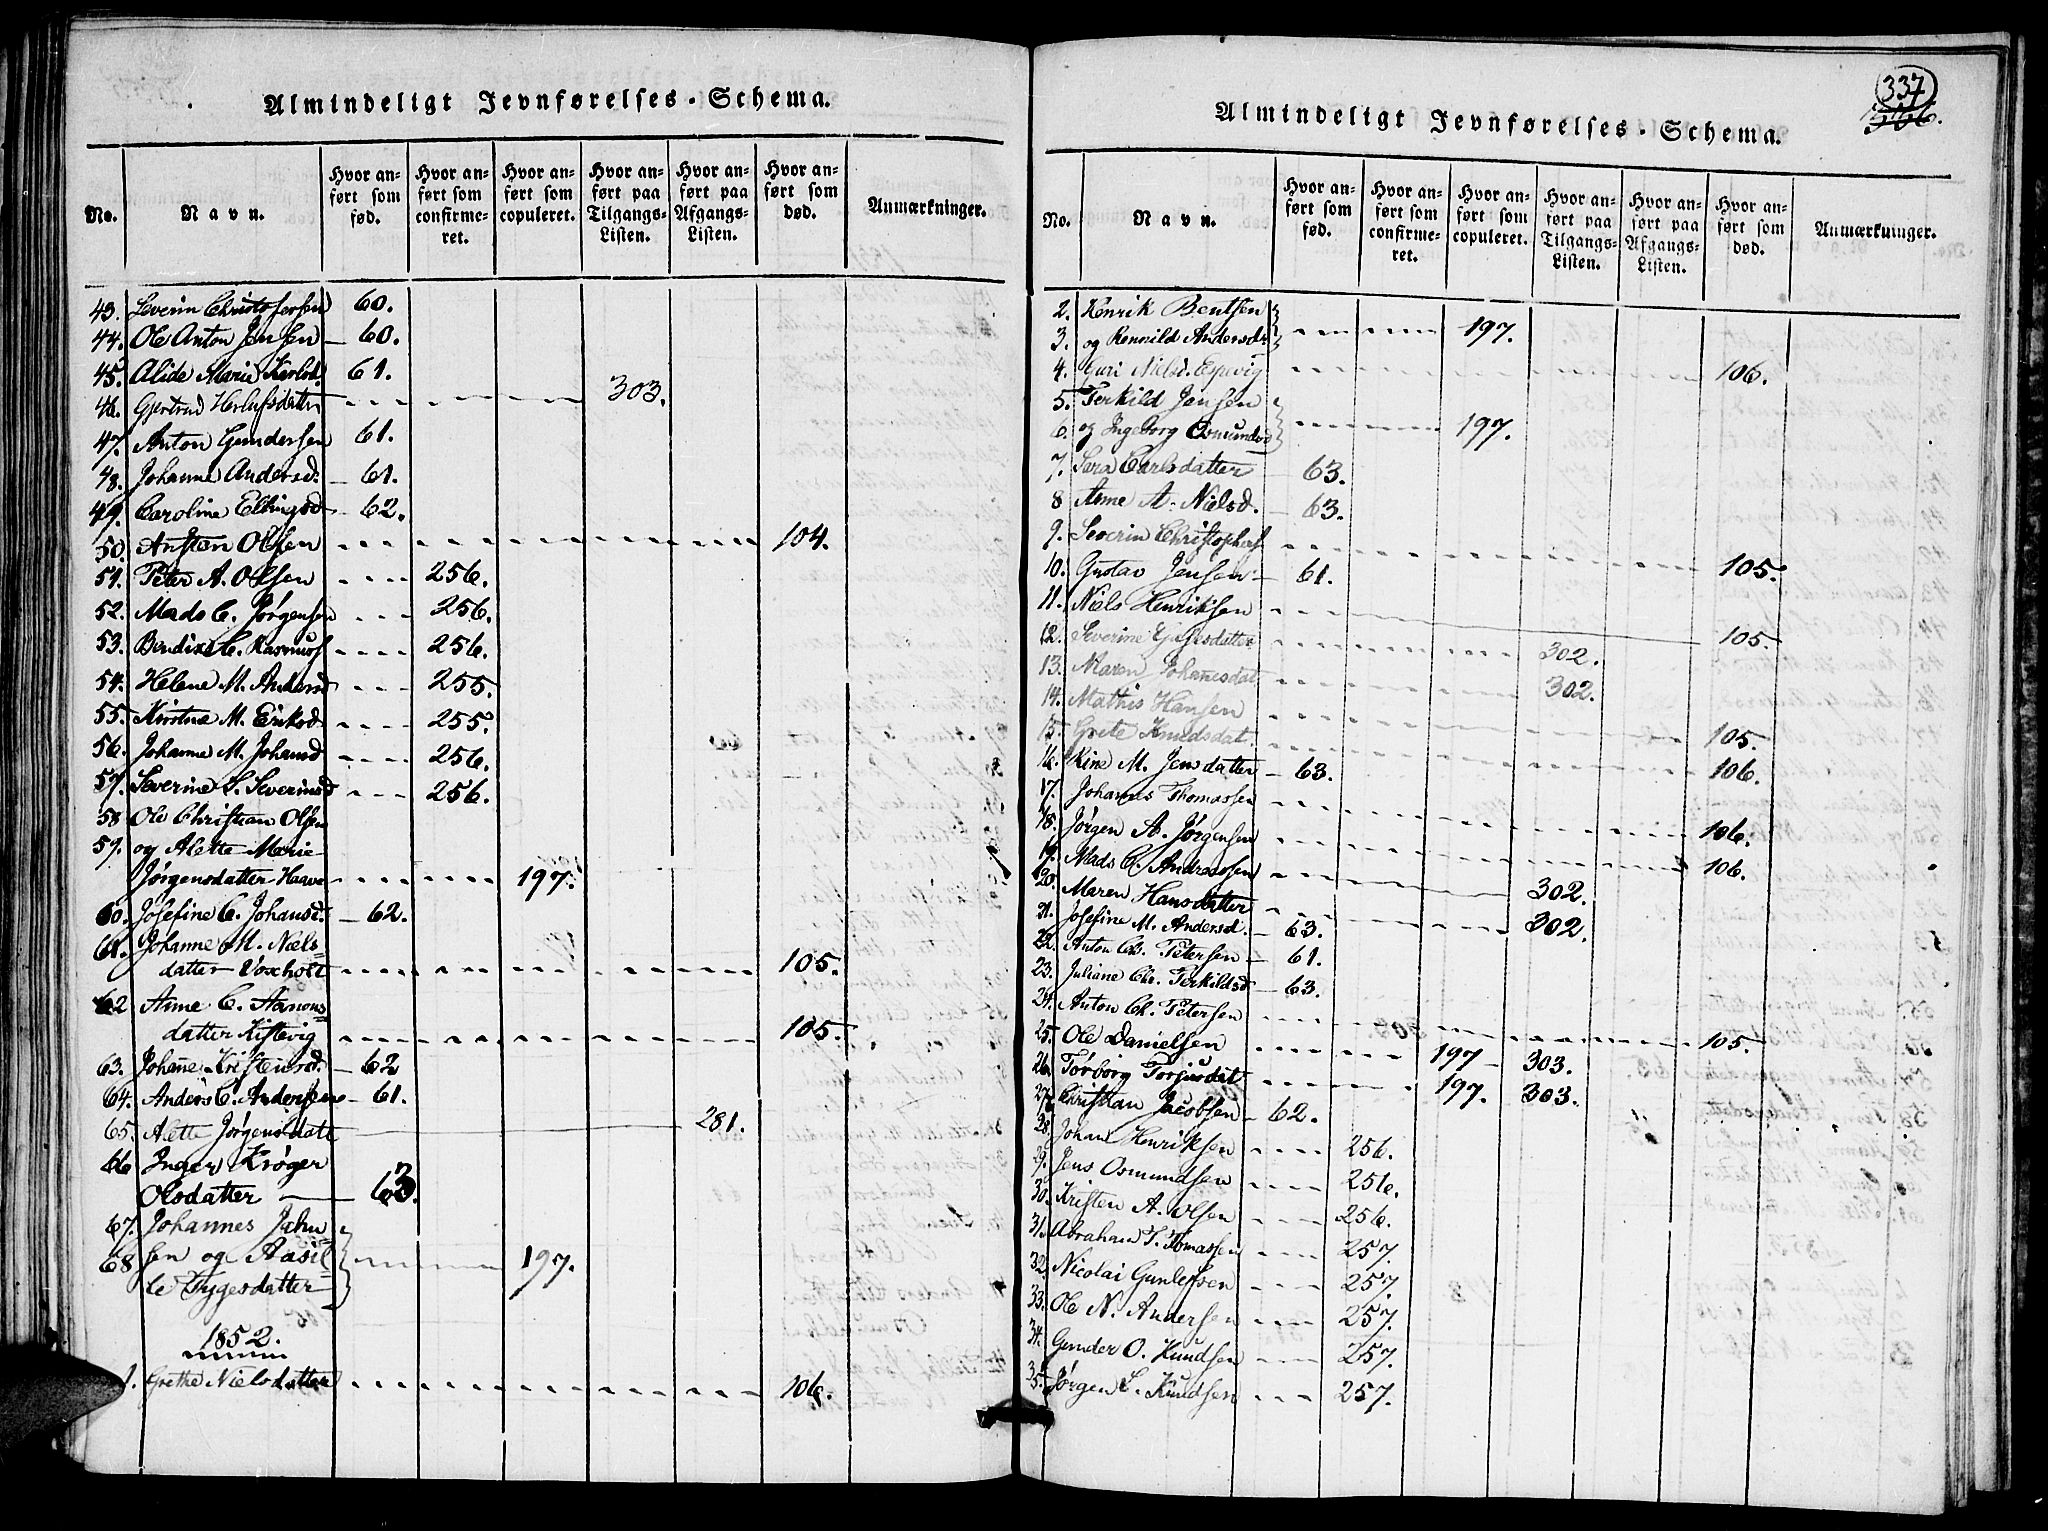 Almindeligt Jevnførelses-Schema.
No.
Navn.
Hvor anført som fød.
Hvor anført som confirmeret.
Hvor anført som copuleret.
Hvor anført paa Tilgangs-Listen.
Hvor anført paa Afgangs-Listen.
Hvor anført som død.
Anmærkninger.
43. Severin Christofersen 60.
44. Ole Anton Jensen 60.
45. Alide Marie 61.
46. Gjertrud 303.
47. Anton Gundersen 61.
48. Johanne Andersd. 61.
49. Caroline Ellingsd 62.
50. Austen Olsen 104.
51. Peter A. Olsen 256.
52. Mads C. Jørgensen 256.
53. Bendix C. Rasmuss 256.
54. Helene M. Andersd 255.
55. Kirstine M. Eriksd 255.
56. Johanne M. Johansd 256.
57. Severine S. Severinsd 256.
58 Ole Christian Olsen
59. og Alette Marie
Jørgensdatter Haave 197.
60. Josefine C. Johansd. 62.
61. Johanne M. Niels
datter Voxholt 105.
62 Anne C. Aanons
datter Kistevig 105.
63. Johane Kristensd. 62
64. Anders C. Andersen 61.
65. Alette Jørgensdatt 281.
66 Inger Krøger
Olsdatter 63.
67. Johannes Jahn
68 sen og Aasil
le Tygesdatter 197.
1852.
1. Grethe Nielsdatter 106.
337
Almindeligt Jevnførelses-Schema.
No.
Navn.
Hvor anført som fød.
Hvor anført som confirmeret.
Hvor anført som copuleret.
Hvor anført paa Tilgangs-Listen.
Hvor anført paa Afgangs-Listen.
Hvor anført som død.
Anmærkninger.
2. Henrik Bentsen
3. og Ronnild Andersdr 197.
4. Guri Nielsd. Espevig 106.
5. Terkild Jensen
6. og Ingeborg Osmundsd 197.
7. Sara Carlsdatter 63.
8 Anne A. Nielsd. 63.
9. Severin Christophers 105.
10. Gustav Jensen 61.
11. Niels Henriksen 105.
12. Severine 302.
13. Maren Johanesdat 302.
14. Mathis Hansen 105.
15. Grete Knudsdat. 106.
16. Kine M. Jensdatter 63.
17. Johannes Thomassen 106.
18. Jørgen A. Jørgensen 106.
19. Mads C. Andreassen 302.
20. Maren Hansdatter 302.
21. Josefine M. Andersd. 63.
22. Anton Ch. Petersen 61.
23. Juliane Chr. Terkildsd 63.
24. Anton Ch. Petersen 105.
25. Ole Danielsen 197 303.
26. Tørborg Torjusdat 197. 303.
27. Christian Jacobsen 62.
28. Johan Henriksen 256.
29. Jens Osmundsen 256.
30. Kristen A. Olsen 256.
31. Abraham T. Tomassen 257.
32. Nicolai Gunlefsen 257.
33. Ole N. Andersen 257.
34. Gunder O. Knudsen 257.
35. Jørgen S. Knudsen 257.